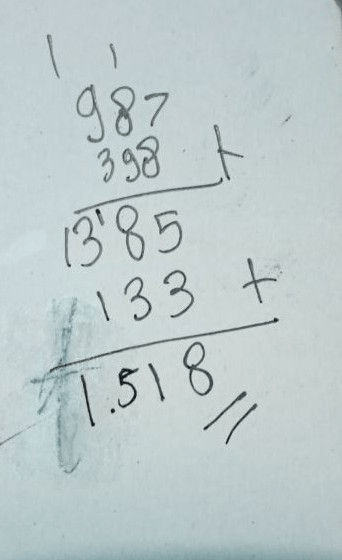 1 1
987
398 +
13'85
133 +
1.518 //